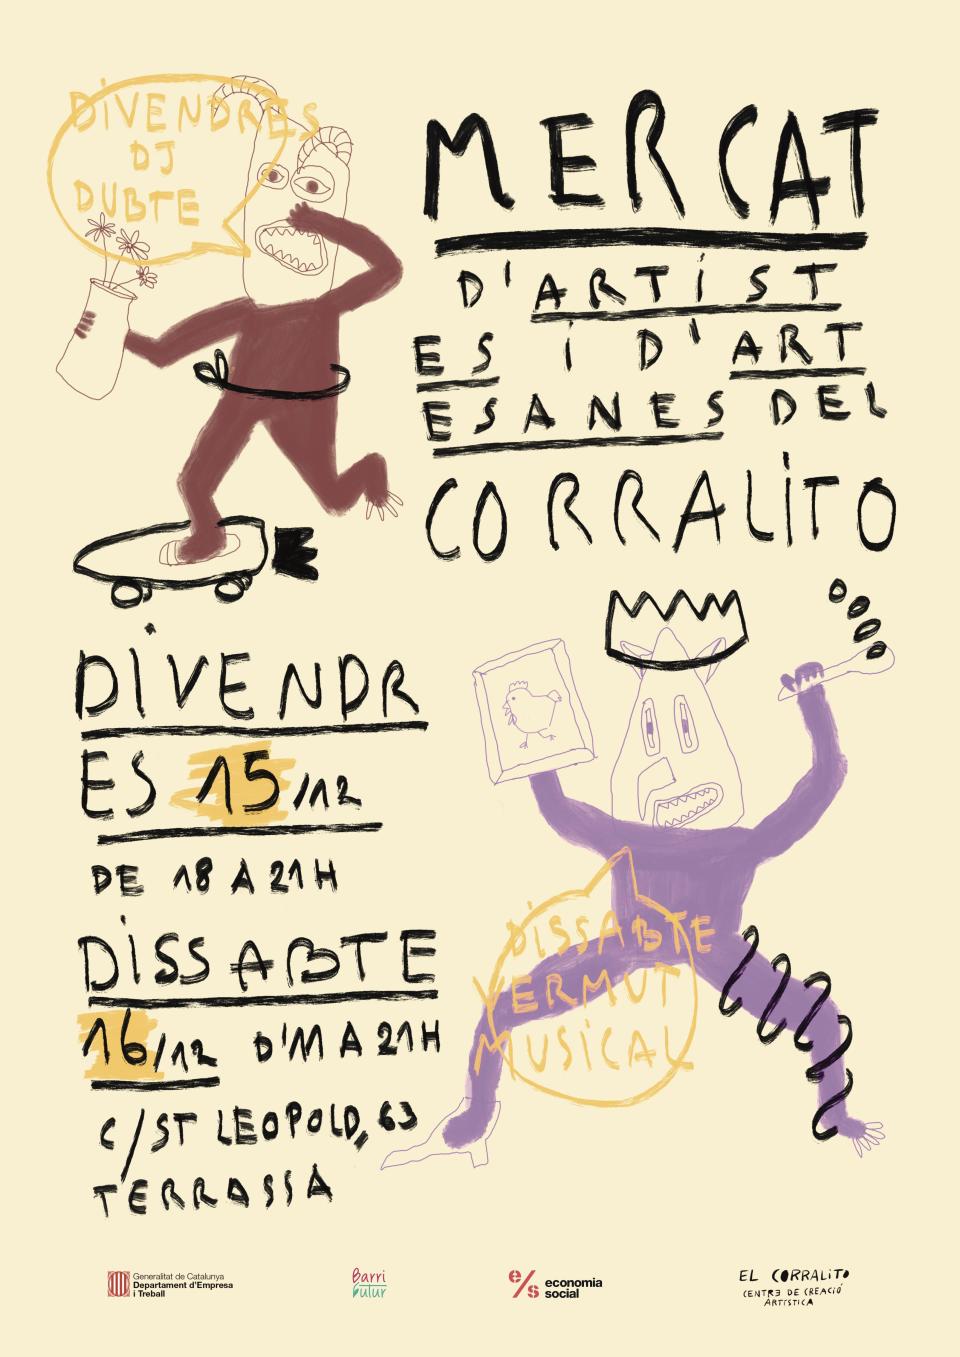 DiVENDRES
DJ
DUBTE
MERCAT
D'ARTiST
ES i D'ART
ESANES DEL
CORRALiTO
DiVENDR
ES 15/12
DE 18 A 21H
DiSSABTE
16/12 D'11 A 21H
C/ST LEOPOLD, 63
TERRASSA
DiSSABTE
VERMUT
MUSiCAL
Generalitat de Catalunya
Departament d'Empresa
i Treball
Barri
Futur
e/s economia
social
EL CORRALiTO
CENTRE DE CREACIÓ
ARTíSTICA